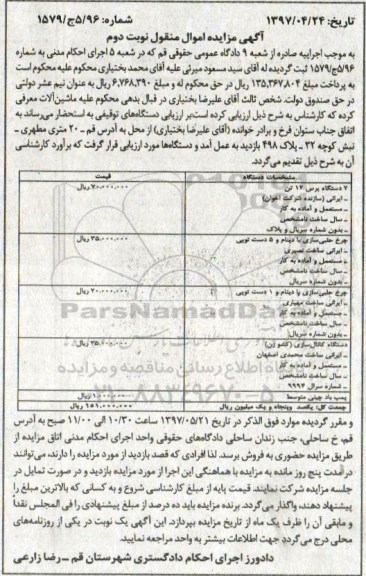 تاریخ: ۱۳۹۷/۰۴/۲۴
شماره: ۵/۹۶ج/۱۵۷۹
آگهی مزایده اموال منقول نوبت دوم
به موجب اجراییه صادره از شعبه ۹ دادگاه عمومی حقوقی قم که در شعبه ۵ اجرای احکام مدنی به شماره
۵/۹۶ج/۱۵۷۹ ثبت گردیده له آقای سید مسعود میرئی علیه آقای محمد بختیاری محکوم علیه محکوم است
به پرداخت مبلغ ۱۳۵,۳۶۷,۸۰۴ ریال در حق محکوم له و مبلغ ۶,۷۶۸,۳۹۰ ریال به عنوان نیم عشر دولتی
در حق صندوق دولت. شخص ثالث آقای علیرضا بختیاری در قبال بدهی محکوم علیه ماشین‌آلات معرفی
کرده که کارشناس به شرح ذیل ارزیابی کرده است. بر ارزیابی دستگاه‌های توقیفی به استحضار می‌رساند به
اتفاق جناب ستوان فرخ و برادر خوانده (آقای علیرضا بختیاری) از محل به آدرس قم - ۲۰ متری مطهری -
نبش کوچه ۳۲ - پلاک ۴۹۸ بازدید به عمل آمد و دستگاه‌ها مورد ارزیابی قرار گرفت که برآورد کارشناسی
آن به شرح ذیل تقدیم می‌گردد.
مشخصات دستگاه	قیمت
۷ دستگاه پرس ۱۷ تن	۷۰,۰۰۰,۰۰۰ ریال
- ایرانی (سازنده شرکت اخوان)
- مستعمل و آماده به کار
- سال ساخت نامشخص
- بدون شماره سریال و پلاک
چرخ حلبی‌سازی با دینام و ۵ دست توپی	۳۵,۰۰۰,۰۰۰ ریال
- ایرانی ساخت نصیری
- مستعمل و آماده به کار
- سال ساخت نامشخص
- بدون سریال
چرخ حلبی‌سازی با دینام و ۱ دست توپی	۲۰,۰۰۰,۰۰۰ ریال
- ایرانی ساخت مهیاری
- مستعمل و آماده به کار
- سال ساخت نامشخص
- بدون شماره سریال
دستگاه کانال‌سازی (کشو زن)	۲۵,۰۰۰,۰۰۰ ریال
- ایرانی ساخت محمدی اصفهان
- مستعمل و آماده به کار
- سال ساخت نامشخص
- شماره سریال ۹۹۹۴
پمپ باد چینی متوسط	۱,۰۰۰,۰۰۰ ریال
جمعت کل: یکصد و پنجاه و یک میلیون ریال	۱۵۱,۰۰۰,۰۰۰ ریال
و مقرر گردیده موارد فوق الذکر در تاریخ ۱۳۹۷/۰۵/۲۱ ساعت ۱۰/۳۰ الی ۱۱/۰۰ صبح به آدرس
قم، خ ساحلی، جنب زندان ساحلی دادگاه‌های حقوقی واحد اجرای احکام مدنی اتاق مزایده از
طریق مزایده حضوری به فروش برسد. لذا افرادی که قصد بازدید از مورد مزایده را دارند، می‌توانند
در مدت پنج روز مانده به مزایده با هماهنگی این اجرا از مورد مزایده بازدید و در صورت تمایل در
جلسه مزایده شرکت نمایند. قیمت پایه از مبلغ کارشناسی شروع و به کسانی که بالاترین مبلغ را
پیشنهاد دهند، واگذار می‌گردد. برنده مزایده باید ده درصد از مبلغ پیشنهادی را فی المجلس نقداً
و مابقی آن را ظرف یک ماه از تاریخ مزایده بپردازد. این آگهی یک نوبت در یکی از روزنامه‌های
محلی درج می‌گردد جهت اطلاعات بیشتر به واحد مراجعه نمایید.
دادورز اجرای احکام دادگستری شهرستان قم - رضا زارعی
ParsNamadData
۰۲۱-۸۸۳۴۹۶۷۰-۵